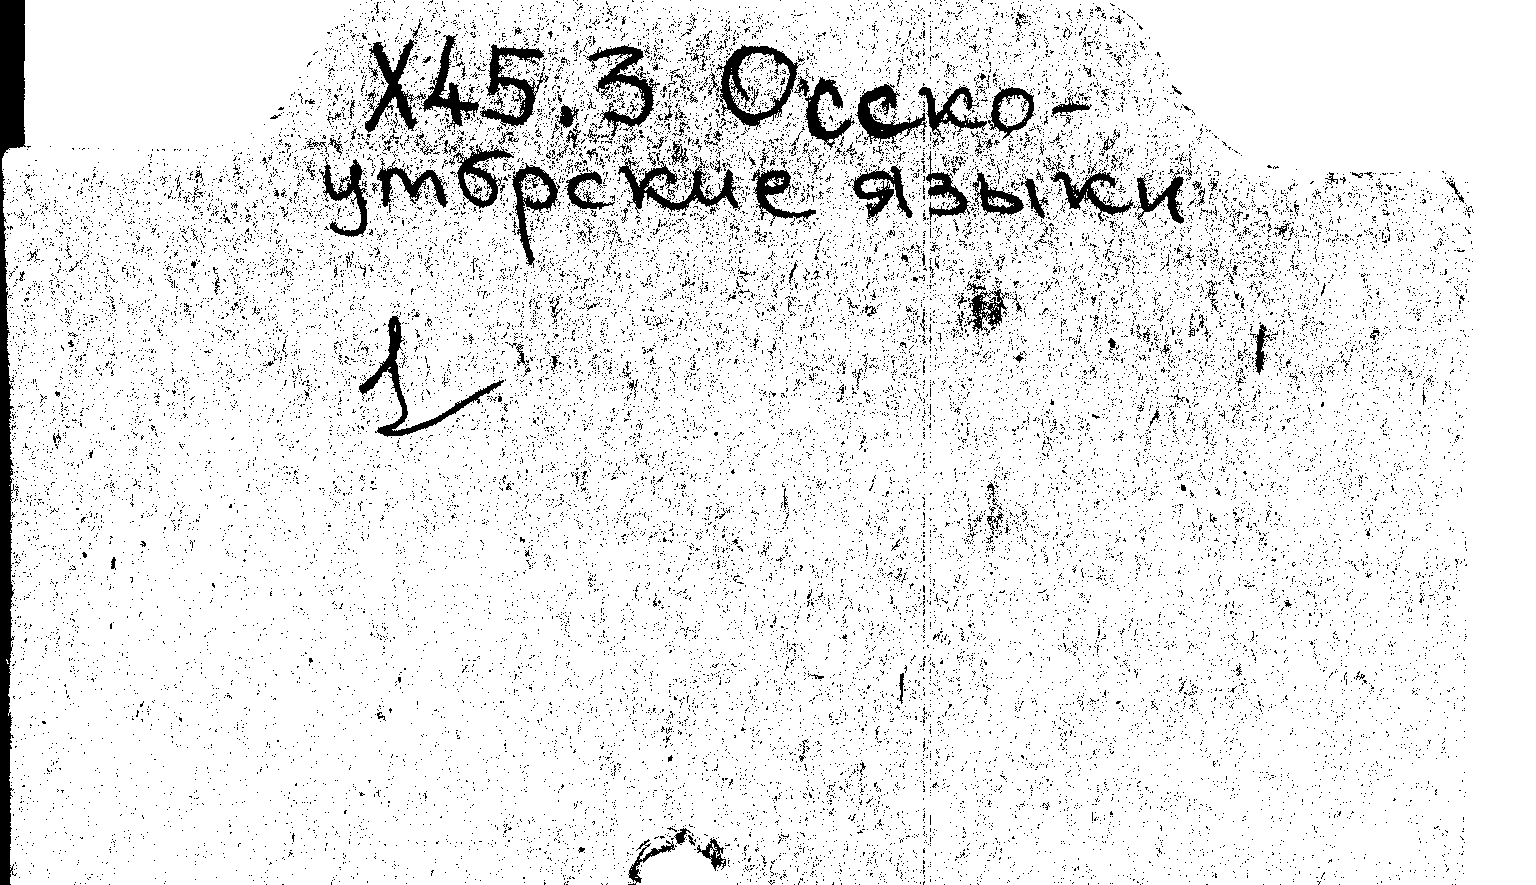 Х45.3 Осско-
умбрские языки
1